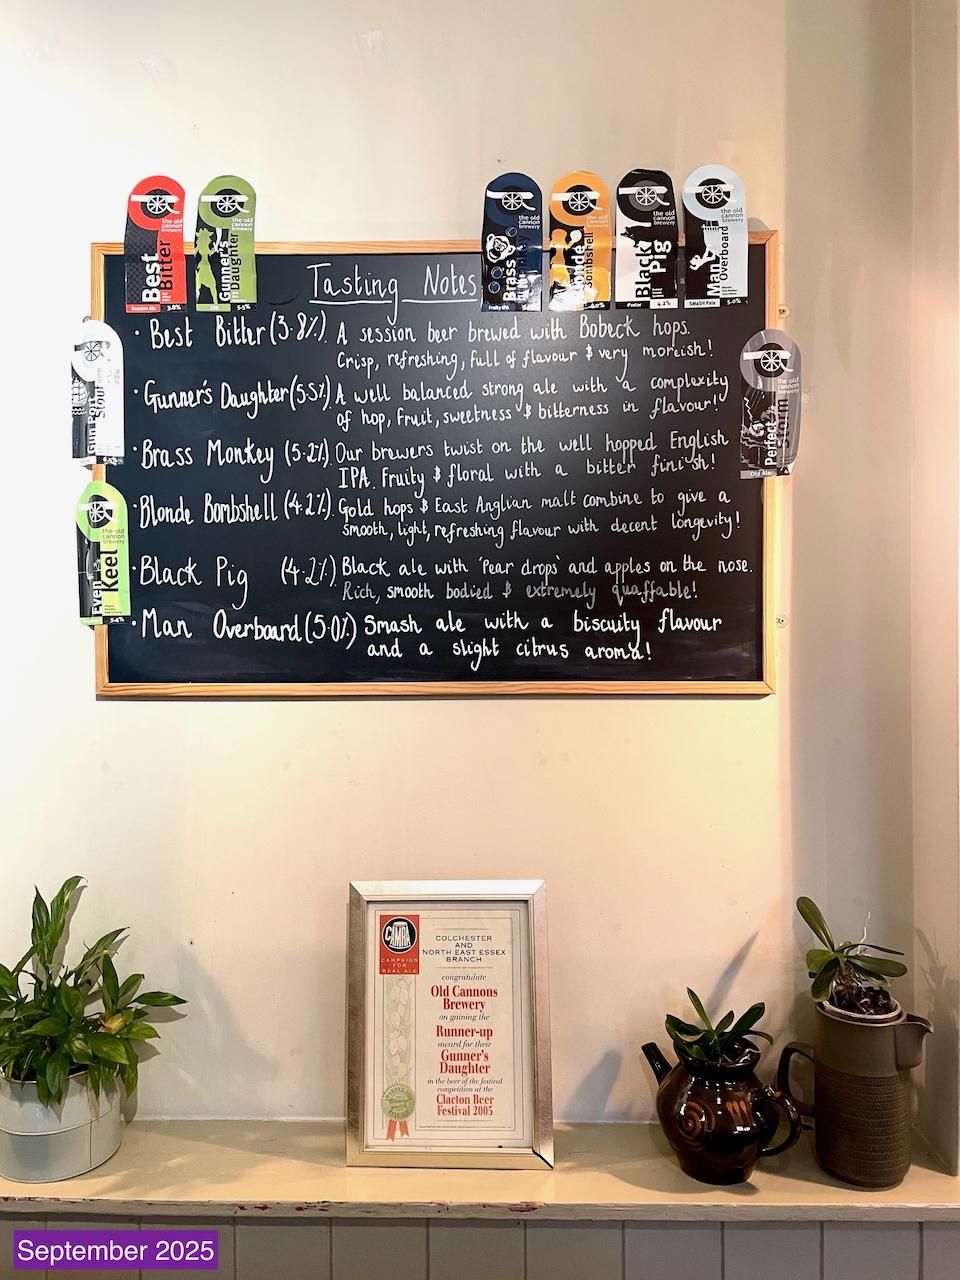 Tasting Notes
• Best Bitter (3.8%). A session beer brewed with Bobeck hops.
Crisp, refreshing, full of flavour & very moreish!
• Gunner's Daughter (5.5%). A well balanced strong ale with a complexity
of hop, fruit, sweetness & bitterness in flavour!
• Brass Monkey (5.2%). Our brewers twist on the well hopped English
IPA. Fruity & floral with a bitter finish!
• Blonde Bombshell (4.2%). Gold hops & East Anglian malt combine to give a
smooth, light, refreshing flavour with decent longevity!
• Black Pig (4.2%) Black ale with 'Pear drops' and apples on the nose.
Rich, smooth bodied & extremely quaffable!
• Man Overboard (5.0%) Smash ale with a biscuity flavour
and a slight citrus aroma!
the old
cannon
brewery
Best
Bitter
3.8%
the old
cannon
brewery
Gunner's
Daughter
5.5%
the old
cannon
brewery
Brass
Monkey
the old
cannon
brewery
Blonde
Bombshell
the old
cannon
brewery
Black
Pig
Porter
4.2%
the old
cannon
brewery
Man
Overboard
SMaSH Pale
5.0%
Gun Port
the old
cannon
brewery
Even
Keel
3.4%
the old
cannon
brewery
Perfect
Storm
Old Ale
CAMRA
CAMPAIGN
FOR
REAL ALE
COLCHESTER
AND
NORTH EAST ESSEX
BRANCH
congratulate
Old Cannons
Brewery
on gaining the
Runner-up
award for their
Gunner's
Daughter
in the beer of the festival
competition at the
Clacton Beer
Festival 2005
September 2025